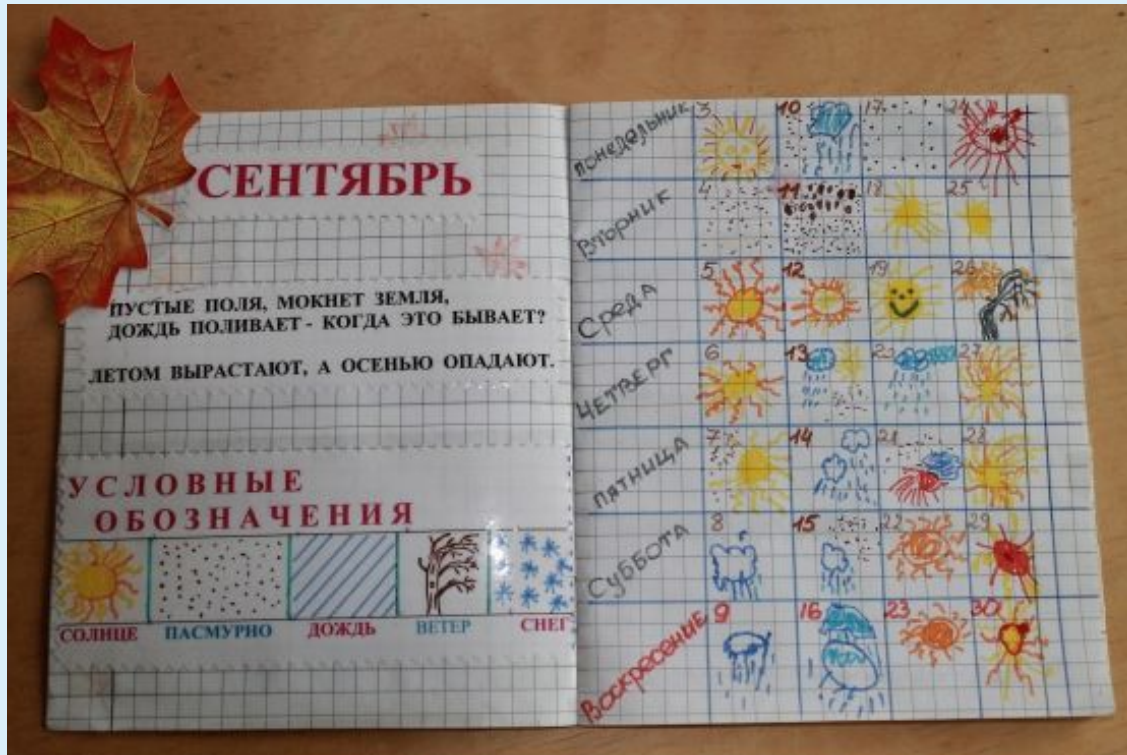 СЕНТЯБРЬ
ПУСТЫЕ ПОЛЯ, МОКНЕТ ЗЕМЛЯ,
ДОЖДЬ ПОЛИВАЕТ - КОГДА ЭТО БЫВАЕТ?
ЛЕТОМ ВЫРАСТАЮТ, А ОСЕНЬЮ ОПАДАЮТ.
УСЛОВНЫЕ
ОБОЗНАЧЕНИЯ
СОЛНЦЕ ПАСМУРНО ДОЖДЬ ВЕТЕР СНЕГ
понедельник 3 10 17 24
Вторник 4 11 18 25
Среда 5 12 19 26
Четверг 6 13 20 27
пятница 7 14 21 28
Суббота 8 15 22 29
Воскресение 9 16 23 30